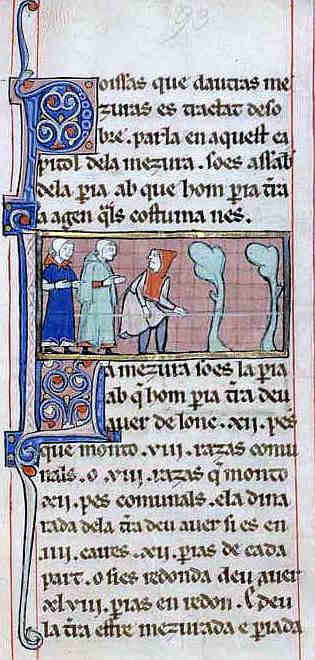 93
Poissas que dautras me
zuras es tractat deso
bre. parla en aquest ca
pitol dela mezura. soes assab
dela pia ab que hom pia tra
a agen qls costuma nes.
La mezura soes la pia
ab q hom pia tra deu
auer de lonc .xii. pes
que monto .viii. razas comu
nals. o .viii. razas q monto
xii. pes comunals. ela dina
rada dela tra deu auer si es en
iiii. caires .xii. pias de cada
part. o sies redonda deu auer
xlviii. pias en redon. E deu
la tra estre mezurada e piada